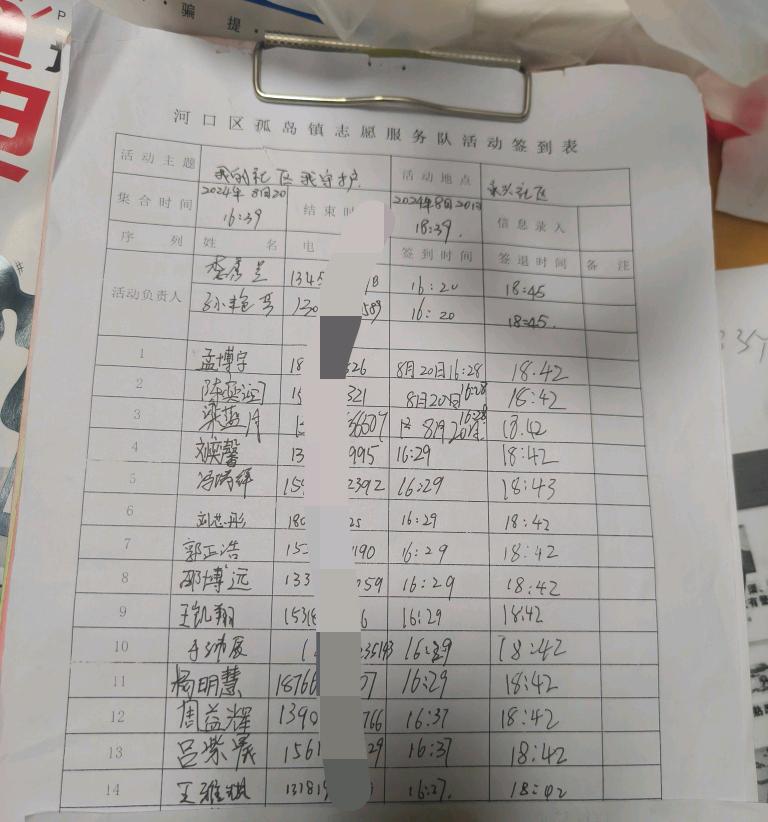 骗 提
河口区孤岛镇志愿服务队活动签到表
活动主题 我的社区我守护 活动地点 永兴社区
集合时间 2024年8月20 16:39 结束时 2024年8月20日 18:39. 信息录入
序列 姓名 电 签到时间 签退时间 备注
活动负责人
1345 8 16:20 18:45
130 589 16:20 18:45.
1 孟博宇 18 326 8月20日16:28 18.42
2 15 321 8月20日16:28 18:42
3 梁蓝月 56607 8月20日16:28 18.42
4 刘奕馨 13 995 16:29 18:42
5 159 2392 16:29 18:43
6 刘芯彤 180 25 16:29 18:42
7 郭正浩 152 190 16:29 18:42
8 邵博远 133 059 16:29 18:42
9 王凯翔 15318 6 16:29 18:42
10 1 235193 16:29 18:42
11 杨明慧 18766 07 16:29 18:42
12 周益辉 1390 766 16:37 18:42
13 吕荣晟 1561 29 16:37 18:42
14 王雅琪 13181 16:37. 18:42